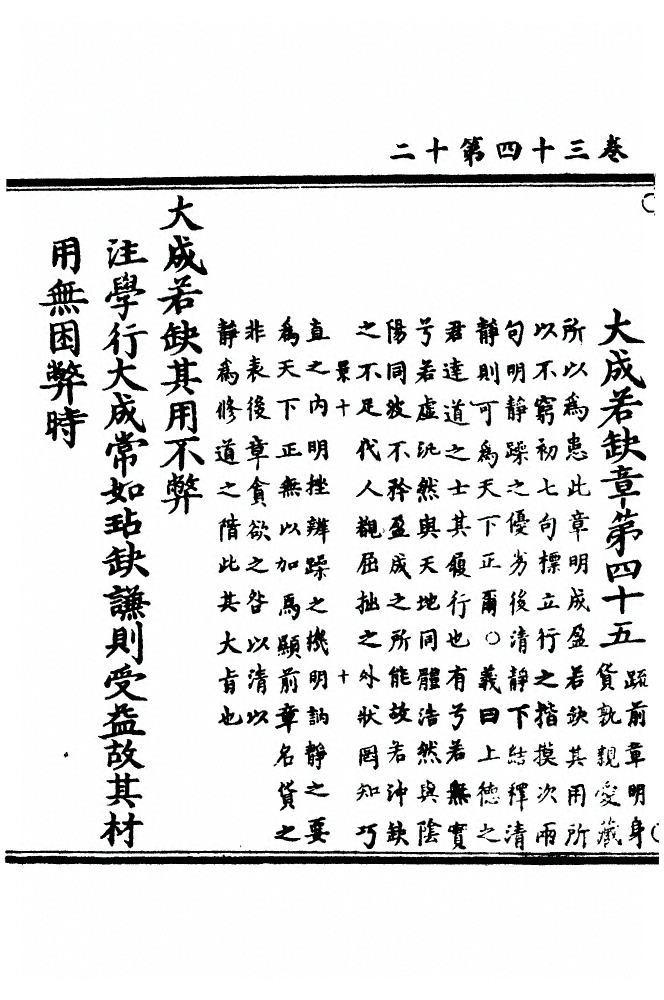 卷三十四第十二
大成若缺章第四十五
疏前章明身
貨孰親愛藏
所以為患此章明成盈若缺其用所
以不窮初七句標立行之揩摸次兩
句明靜躁之優劣後清靜下結釋清
靜則可為天下正爾○義曰上德之
君達道之士其履行也有兮若無實
兮若虛汎然與天地同體浩然與陰
陽同波不矜盈成之所能故若沖缺
之不足代人觀屈拙之外狀罔知巧
景十 十
直之内明拙辨躁之機明訥靜之要
為天下正無以加焉顯前章名貨之
非表後章貪欲之咎以清以
靜為修道之階此其大旨也
大成若缺其用不弊
注學行大成常如玷缺謙則受益故其材
用無困弊時